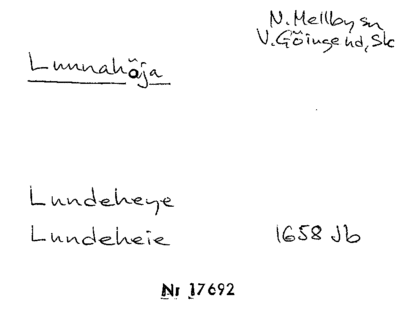 N. Mellby sn
V. Göinge hd, Sk
Lunnahöja
Lundeheye
Lundeheie 1658 Jb
Nr 17692